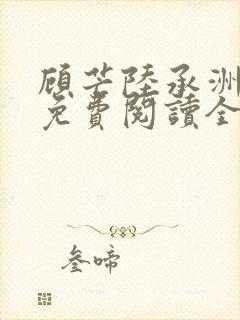 顾芒陸承洲
免費閱讀全
叁啼